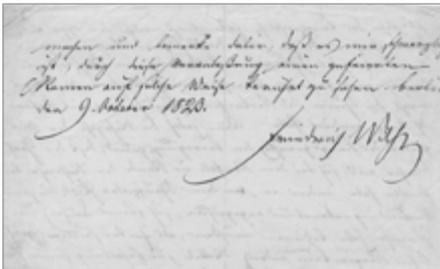 machen und bemerke dabei, daß es mir schmerzlich
ist, durch diese Veranlaßung einen geehrten
Namen auf solche Weise
den 9. October 1823.
Friedrich Wilh